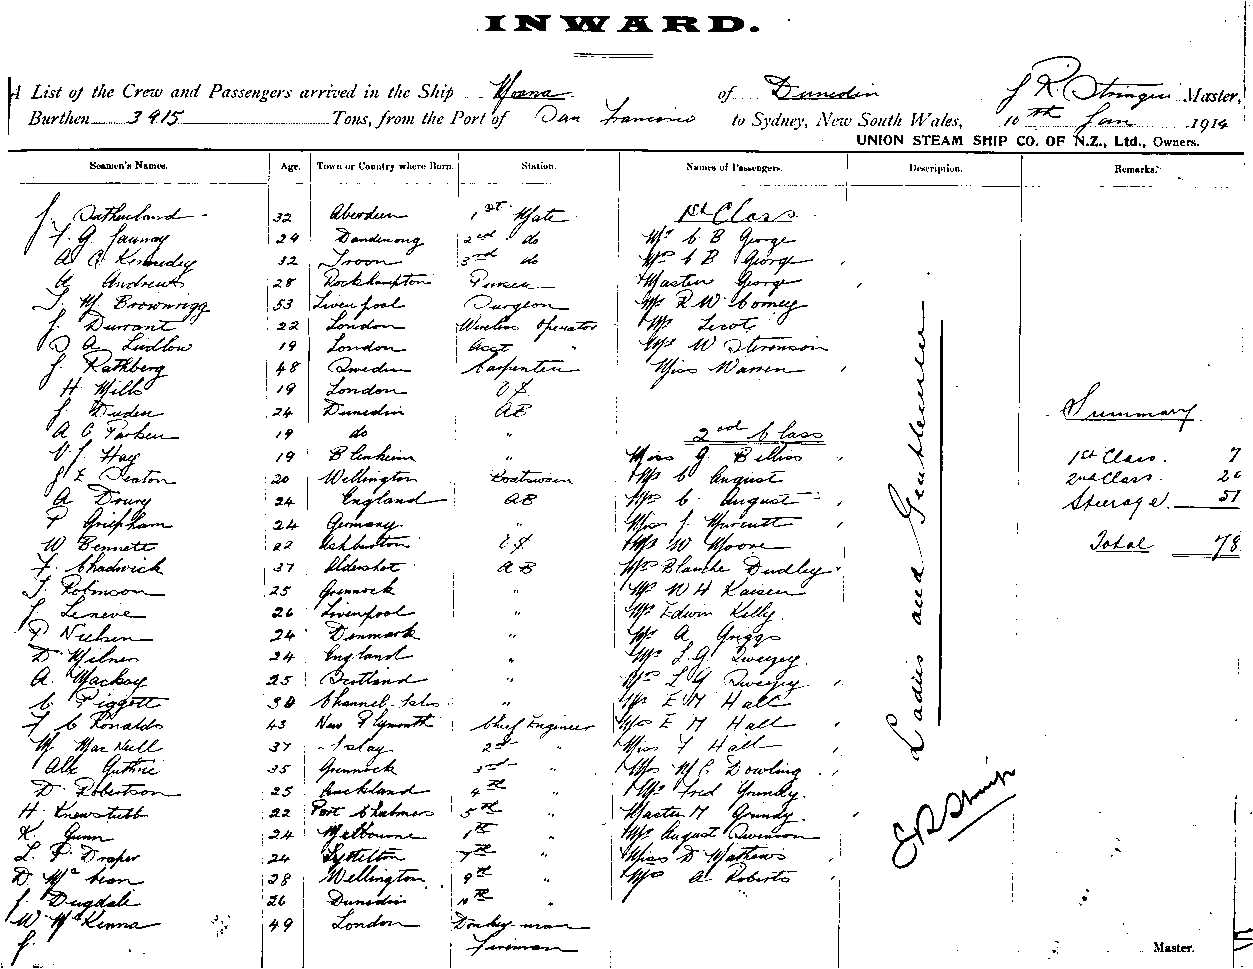 INWARD.
A List of the Crew and Passengers arrived in the Ship Moana of Dunedin J R Stringer Master,
Burthen 3915 Tons, from the Port of San Francisco to Sydney, New South Wales, 10th Jan 1914
UNION STEAM SHIP CO. OF N.Z., Ltd., Owners.
Seamen's Names. Age. Town or Country where Born. Station. Names of Passengers. Description. Remarks.
J. Sutherland 32 Aberdeen 1st Mate 1st Class
F. G. 29 Dandenong 2nd do Mr C B George
A C Kennedy 32 Troon 3rd do Mrs C B George
A Andrews 28 Rockhampton Purser Master George
T. M Brownrigg 53 Liverpool Surgeon Mr R W Corney
J. Durrant 22 London Wireless Operator Mr
S A Ludlow 19 London Asst " W Stevenson
J. Rathberg 48 Sweden Carpenter Miss Warren
H Mills 19 London OS
J. Duden 24 Dunedin AB Summary
A C Parken 19 do " 2nd Class
V. J. Hay 19 Blenheim " Miss G. Billins 1st Class. 7
J E Seaton 20 Wellington Boatswain Mr C August 2nd Class. 20
A Doury 24 England AB Mrs C. August Steerage. 51
P Griepham 24 Germany " Miss J. Total 78
W Bennett 22 Ashburton OS W Moore
F. Chadwick 37 Aldershot AB Mrs Blanche Dudley
T. Robinson 25 Greenock " W H Kaiser
J. Leneve 26 Liverpool " Mr Edwin Kelly
P Nielsen 24 Denmark " Mr A Griggs
D Milner 24 England " Mr L. G. Sweezey
A. Mackay 25 Scotland " Mrs L G Sweezey
C Piggott 30 Channel Isles " Mr E H Hall
F C Ronalds 43 New Plymouth Chief Engineer Mrs E H Hall
W MacNeill 37 Islay 2nd " Miss F Hall
Alx Guthrie 35 Greenock 3rd " Dowling
D. Robertson 25 Auckland 4th " Fred Grundy.
H Knewstubb 22 Port Chalmers 5th " Master H Grundy.
K. Gunn 24 Melbourne " August Swenson
L. P. Draper 24 Lyttelton 7th " Miss D Mathews
D McBean 28 Wellington 9th " A Roberts
J. Dugdale 26 Dunedin 10th "
W McKenna 49 London Donkeyman
J. Fireman
Ladies and Gentlemen
Master.